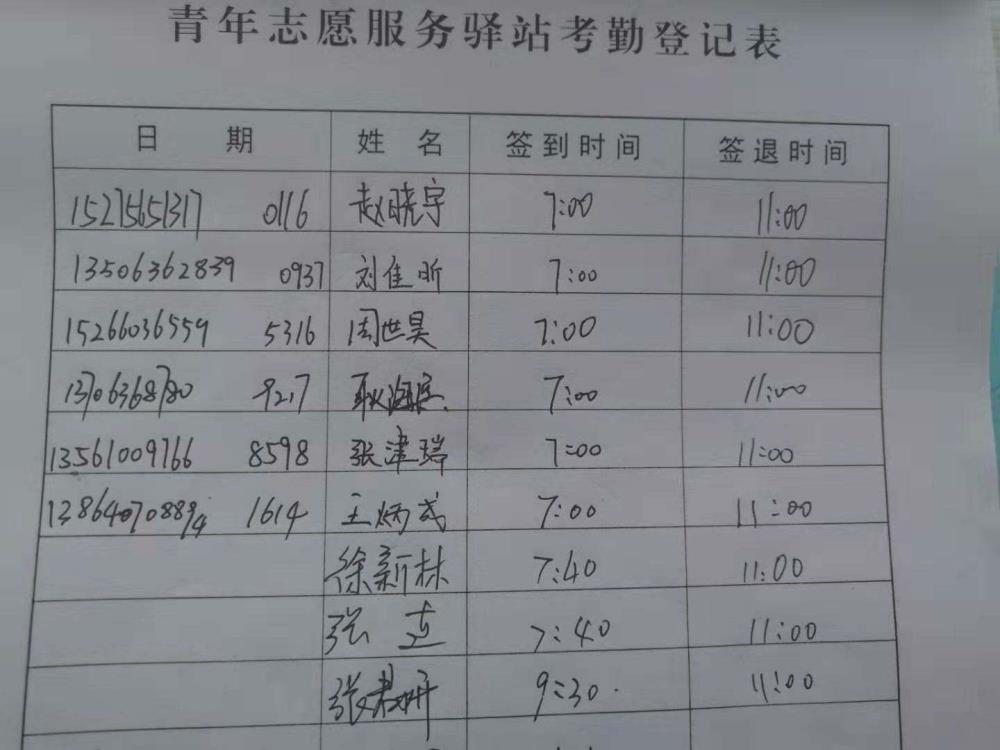 青年志愿服务驿站考勤登记表
日 期 姓 名 签到时间 签退时间
15275651317 0116 赵晓宇 7:00 11:00
13506362839 0937 刘佳昕 7:00 11:00
15266036559 5316 周世昊 7:00 11:00
13706368780 9217 耿海 7:00 11:00
13561009766 8598 张津瑞 7:00 11:00
13864070889 1614 王炳武 7:00 11:00
徐新林 7:40 11:00
张 7:40 11:00
张君妍 9:30 11:00